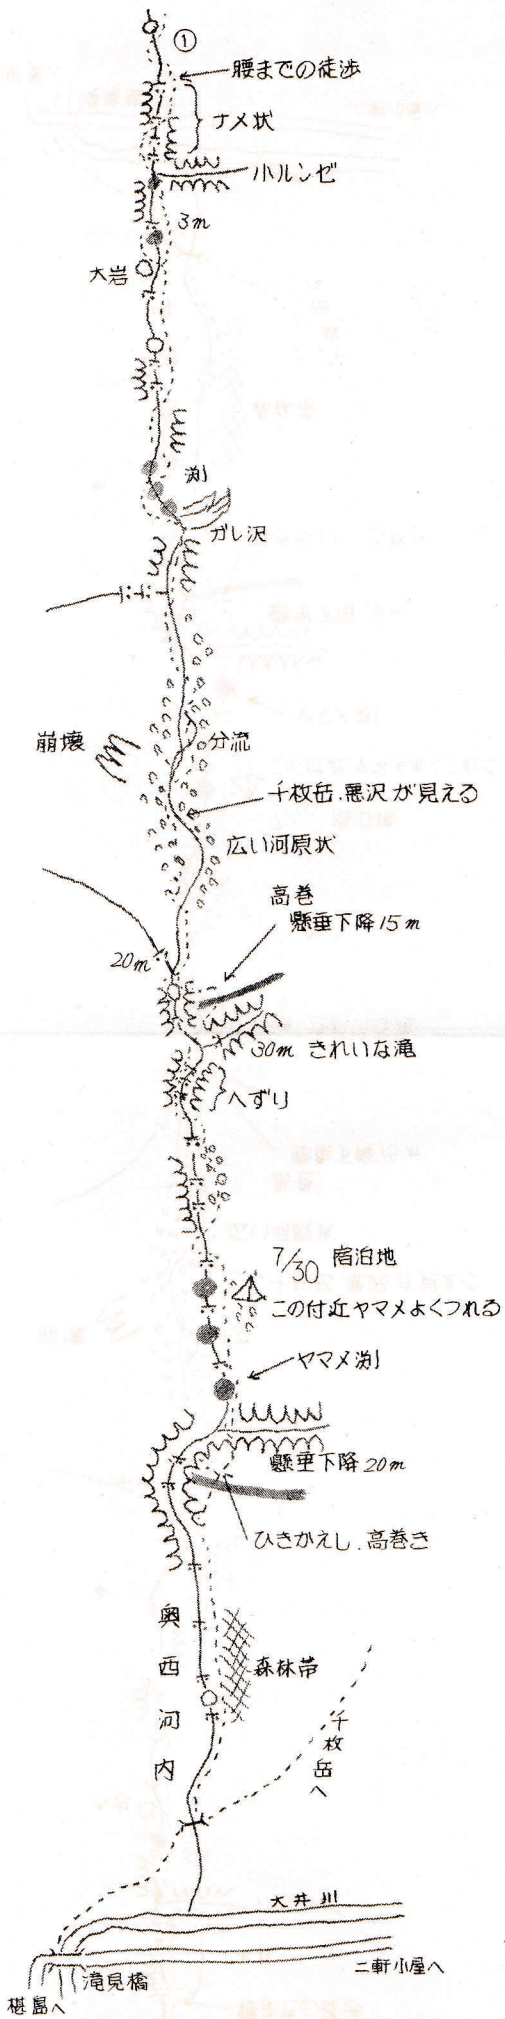 ①
腰までの徒渉
ナメ状
小ルンゼ
3m
大岩
渕
ガレ沢
分流
崩壊
千枚岳.悪沢が見える
広い河原状
高巻
懸垂下降15m
20m
30m きれいな滝
へずり
7/30 宿泊地
この付近ヤマメよくつれる
ヤマメ渕
懸垂下降20m
ひきかえし.高巻き
奥西河内
森林帯
千枚岳へ
大井川
二軒小屋へ
滝見橋
椹島へ